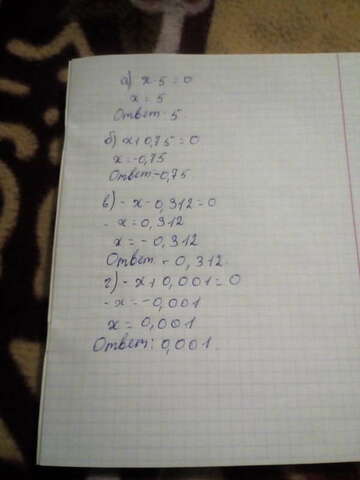 а) x-5=0
x=5
Ответ: 5
б) x+0,75=0
x=-0,75
Ответ-0,75
в) -x-0,312=0
-x=0,312
x=-0,312
Ответ -0,312.
г) -x+0,001=0
-x=-0,001
x=0,001
Ответ: 0,001.